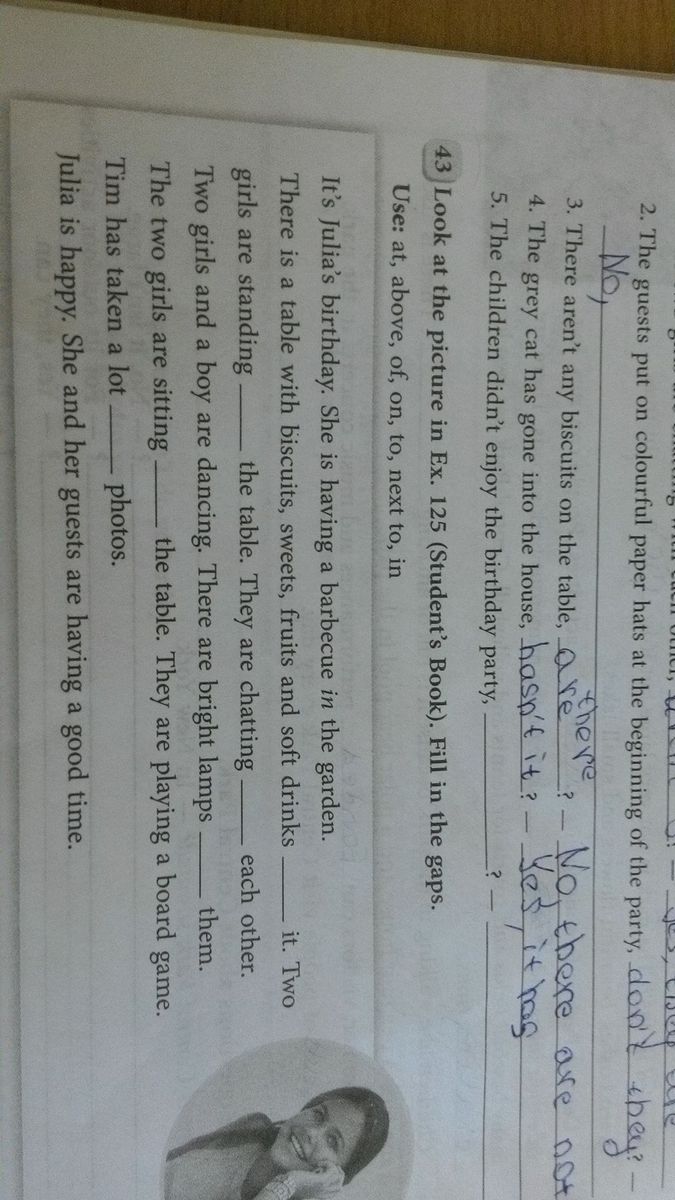 2. The guests put on colourful paper hats at the beginning of the party, don't they? –
No,
3. There aren't any biscuits on the table, are there? – No, there are not
4. The grey cat has gone into the house, hasn't it? – Yes, it has
5. The children didn't enjoy the birthday party, ____________? –
43 Look at the picture in Ex. 125 (Student's Book). Fill in the gaps.
Use: at, above, of, on, to, next to, in
It's Julia's birthday. She is having a barbecue in the garden.
There is a table with biscuits, sweets, fruits and soft drinks _____ it. Two
girls are standing _____ the table. They are chatting _____ each other.
Two girls and a boy are dancing. There are bright lamps _____ them.
The two girls are sitting _____ the table. They are playing a board game.
Tim has taken a lot _____ photos.
Julia is happy. She and her guests are having a good time.